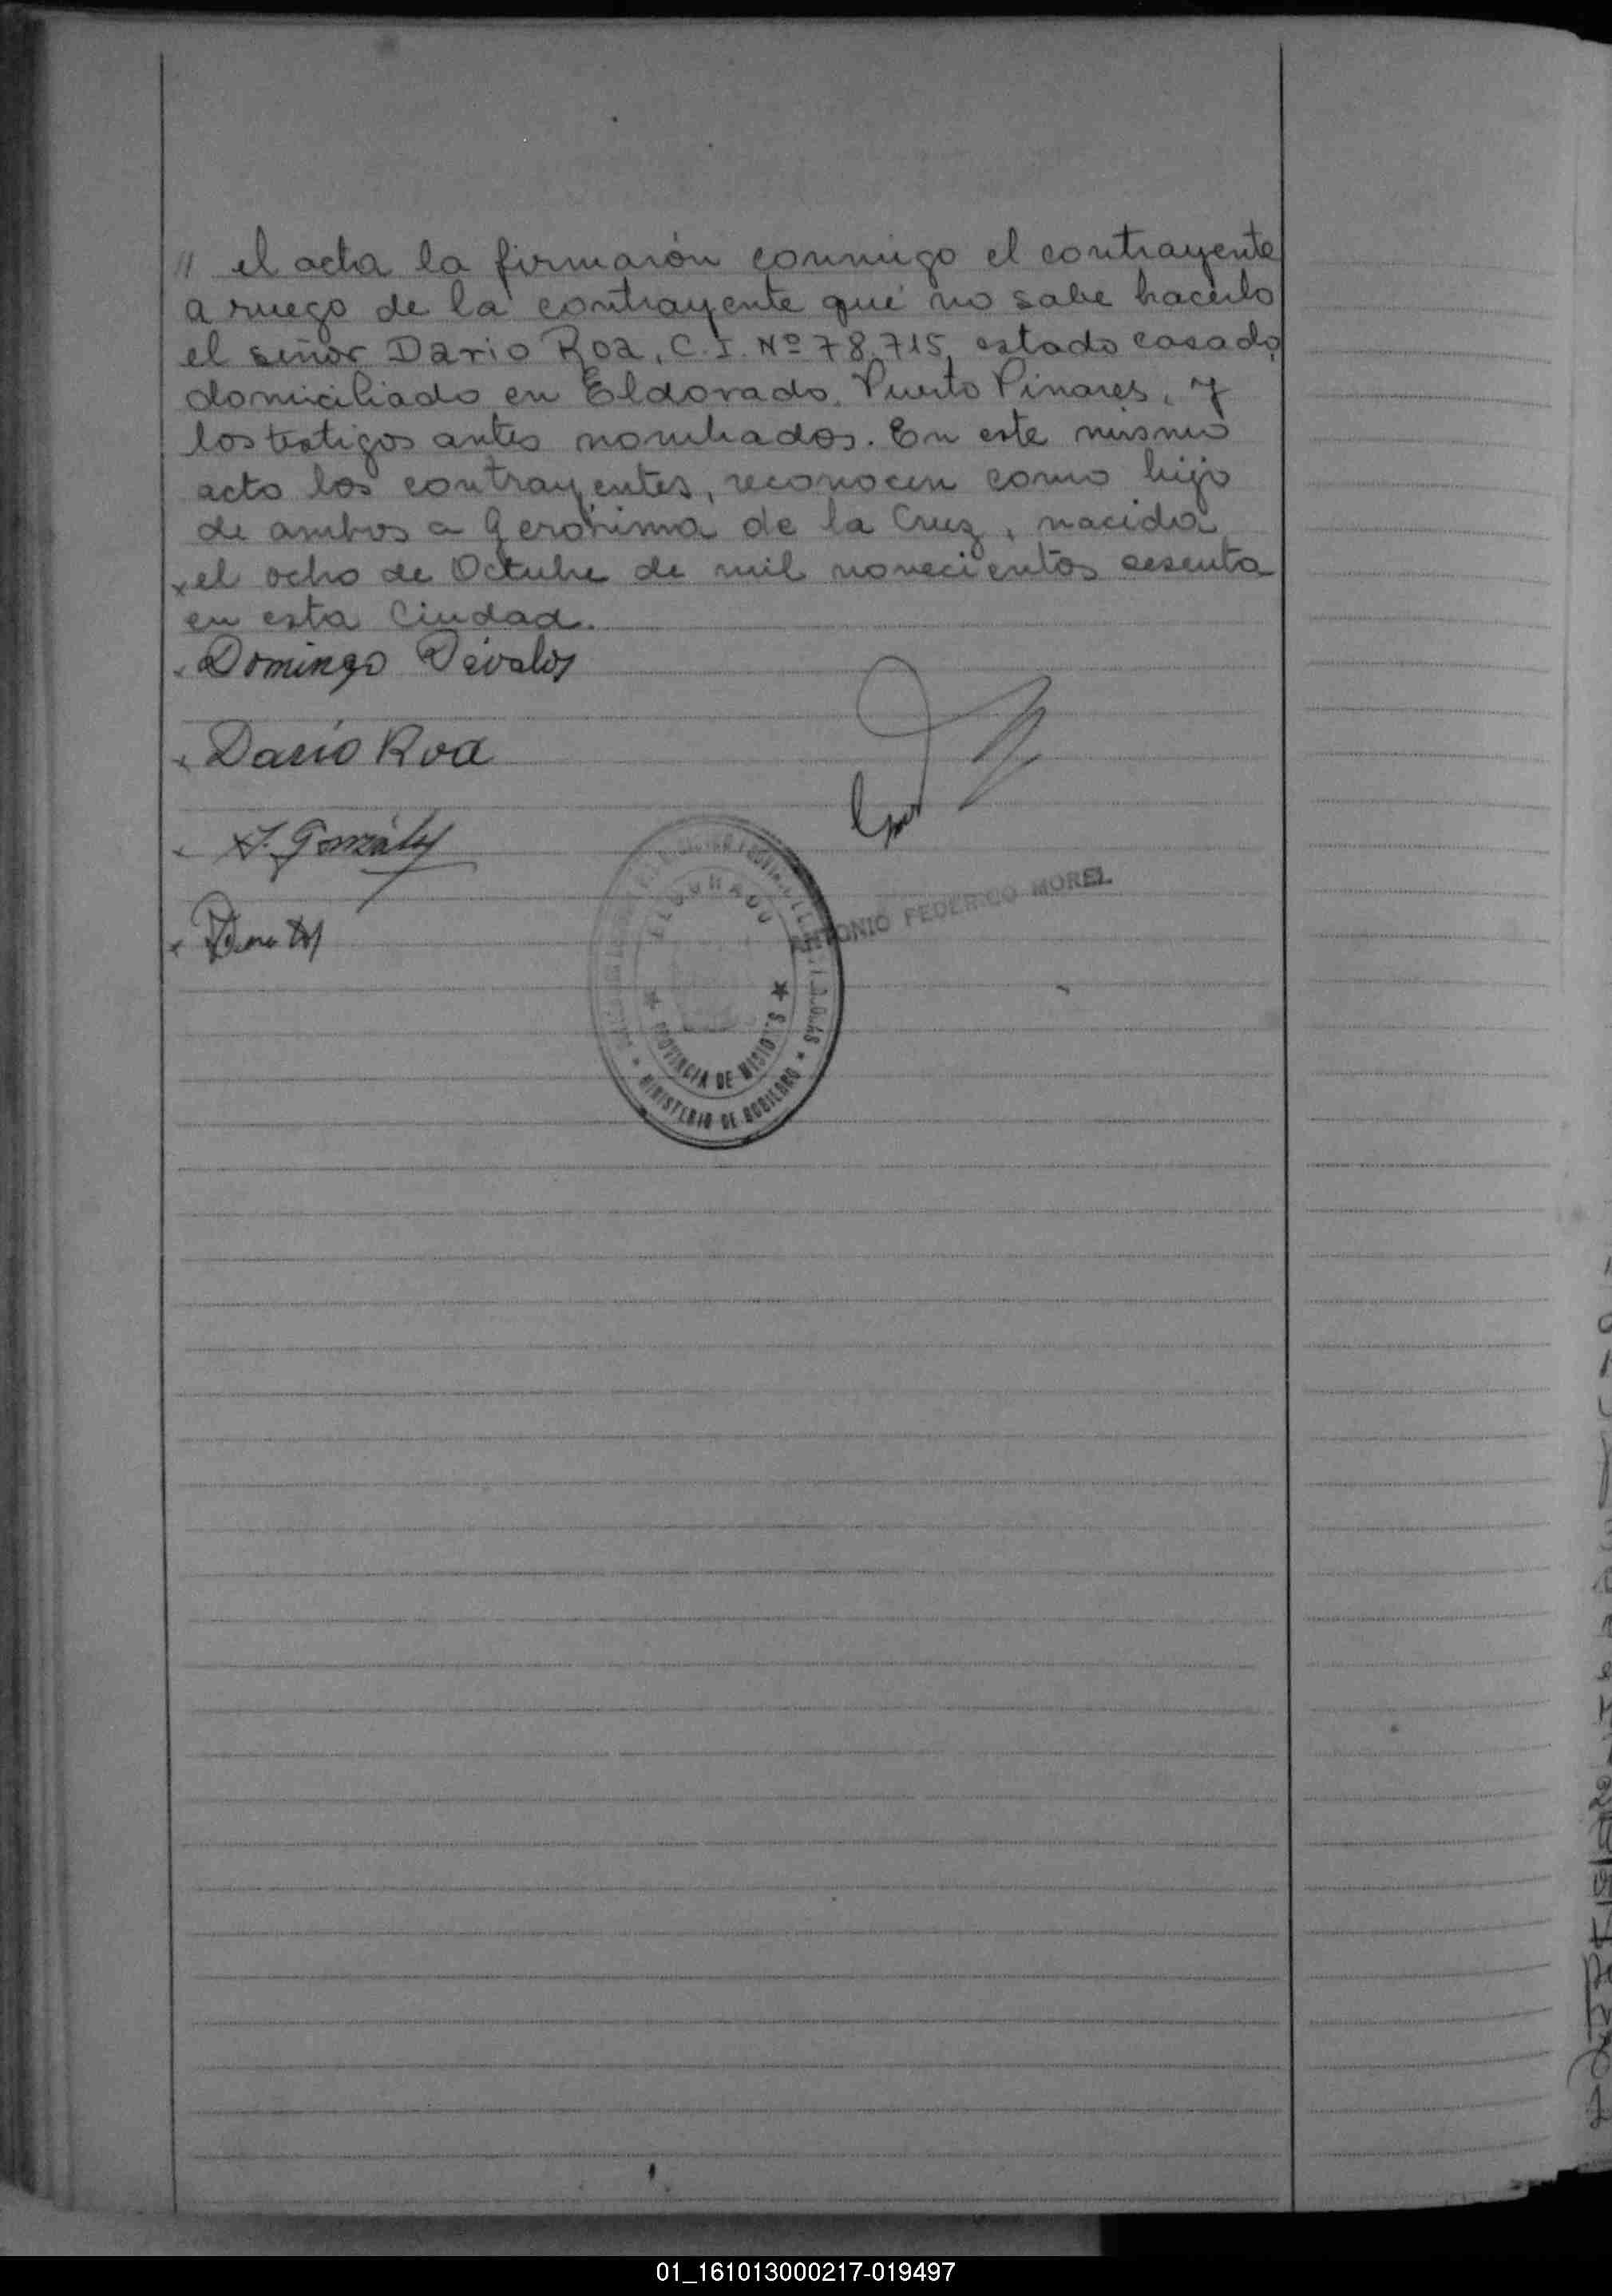 // el acta la firmarón conmigo el contrayente
a ruego de la contrayente que no sabe hacerlo
el señor Dario Roa, C.I. Nº 78.715, estado casado,
domiciliado en Eldorado, Puerto Pinares, y
los testigos antes nombrados. En este mismo
acto los contrayentes, reconocen como hijo
de ambos a Gerónima de la Cruz, nacida
el ocho de Octubre de mil novecientos sesenta
en esta Ciudad.
Domingo Dévalos
Dario Roa
J. González
ANTONIO FEDERICO MOREL
ELDORADO
PROVINCIA DE MISIONES
MINISTERIO DE GOBIERNO
01_161013000217-019497